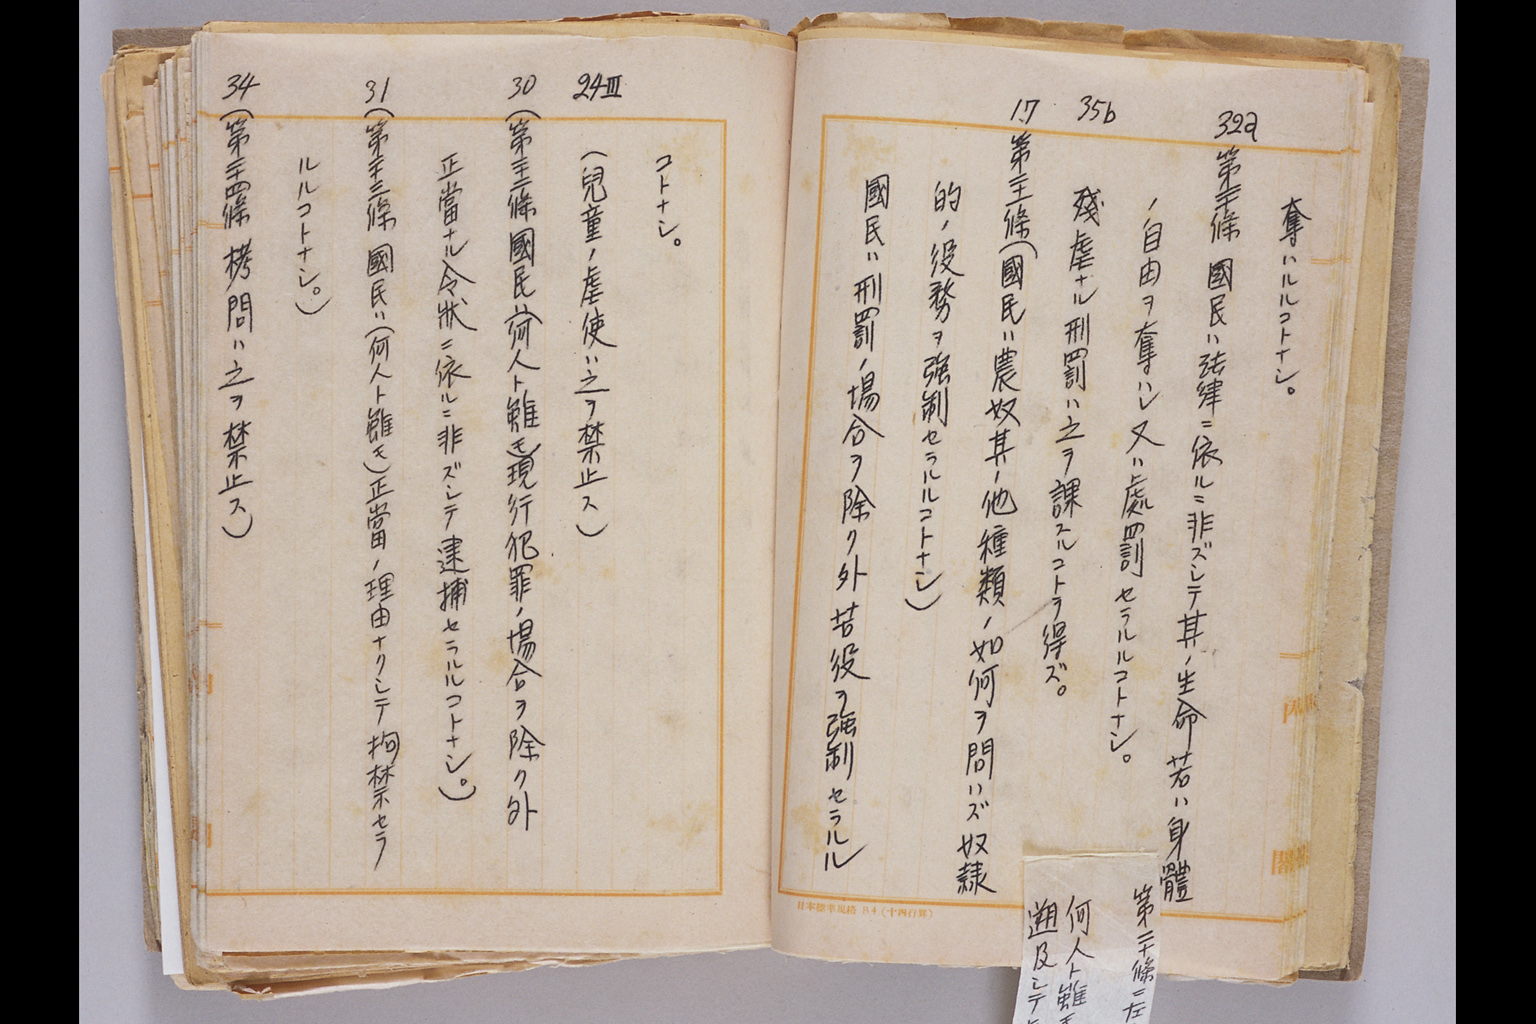 奪ハルルコトナシ。
32a
第三十條 國民ハ法律ニ依ルニ非ズシテ其ノ生命若ハ身體
ノ自由ヲ奪ハレ又ハ處罰セラルルコトナシ。
35b
殘虐ナル刑罰ハ之ヲ課スルコトヲ得ズ。
17
第三十一條(國民ハ農奴其ノ他種類ノ如何ヲ問ハズ奴隷
的ノ役務ヲ強制セラルルコトナシ)
國民ハ刑罰ノ場合ヲ除ク外苦役ヲ強制セラルル
日本標準規格 B4(十四行罫)
第二十條ニ左
何人ト雖モ
遡及シテ
コトナシ。
24Ⅲ
(兒童ノ虐使ハ之ヲ禁止ス)
30
(第三十二條國民ハ(何人ト雖モ)現行犯罪ノ場合ヲ除ク外
正當ナル令狀ニ依ルニ非ズシテ逮捕セラルルコトナシ。)
31
(第三十三條 國民ハ(何人ト雖モ)正當ノ理由ナクシテ拘禁セラ
ルルコトナシ。)
34
(第三十四條 拷問ハ之ヲ禁止ス)